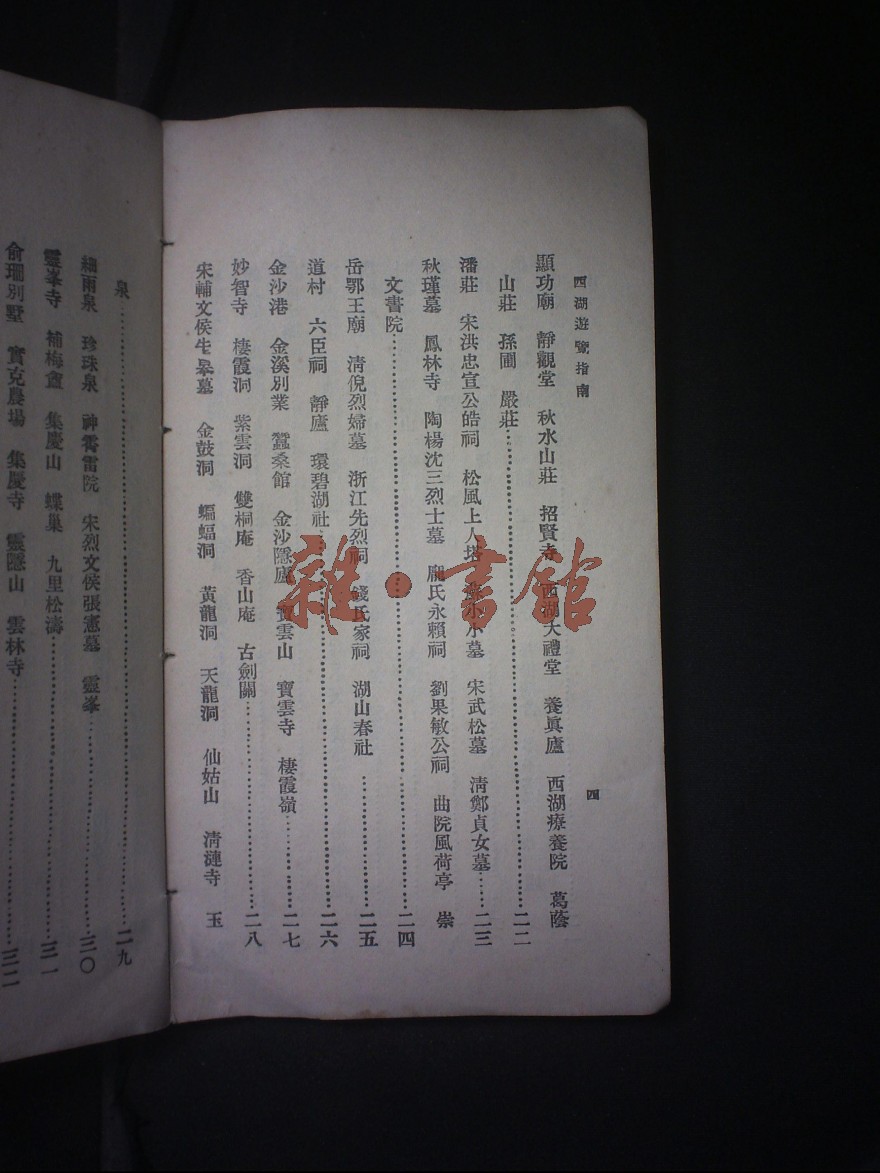 西湖遊覽指南
四
顯功廟 靜觀堂 秋水山莊 招賢寺 西湖大禮堂 養眞廬 西湖療養院 葛蔭
山莊 孫圃 嚴莊……二二
潘莊 宋洪忠宣公皓祠 松風上人塔 蘇小小墓 宋武松墓 淸鄭貞女墓……二三
秋瑾墓 鳳林寺 陶楊沈三烈士墓 龐氏永賴祠 劉果敏公祠 曲院風荷亭 崇
文書院……二四
岳鄂王廟 淸倪烈婦墓 浙江先烈祠 錢氏家祠 湖山春社……二五
道村 六臣祠 靜廬 環碧湖社……二六
金沙港 金溪別業 蠶桑館 金沙隱廬 寶雲山 寶雲寺 棲霞嶺……二七
妙智寺 棲霞洞 紫雲洞 雙桐庵 香山庵 古劍關……二八
宋輔文侯牛皋墓 金鼓洞 蝙蝠洞 黃龍洞 天龍洞 仙姑山 淸漣寺 玉
泉……二九
細雨泉 珍珠泉 神霄雷院 宋烈文侯張憲墓 靈峯……三〇
靈峯寺 補梅盦 集慶山 蝶巢 九里松濤……三一
俞珊別墅 實克農場 集慶寺 靈隱山 雲林寺……三二
雜·書館